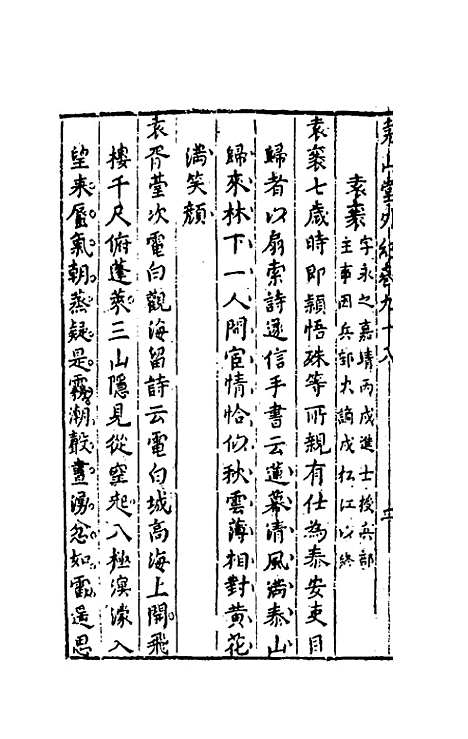 堯山堂外紀卷九十八
袁袠字永之嘉靖丙戌進士授兵部
主事因兵部火謫戍松江以終
袁袠七歲時即穎悟殊等所親有仕為泰安吏目
歸者以扇索詩遂信手書云蓮幕清風满泰山
歸來林下一人閒宦情恰似秋雲薄相對黄花
满笑顔
袁胥臺次電白觀海留詩云電白城高海上開飛
樓千尺俯蓬萊三山隱見從空起八極溟濛入
望来蜃氣朝蒸疑是霧潮聲晝湧忽如雷遥思